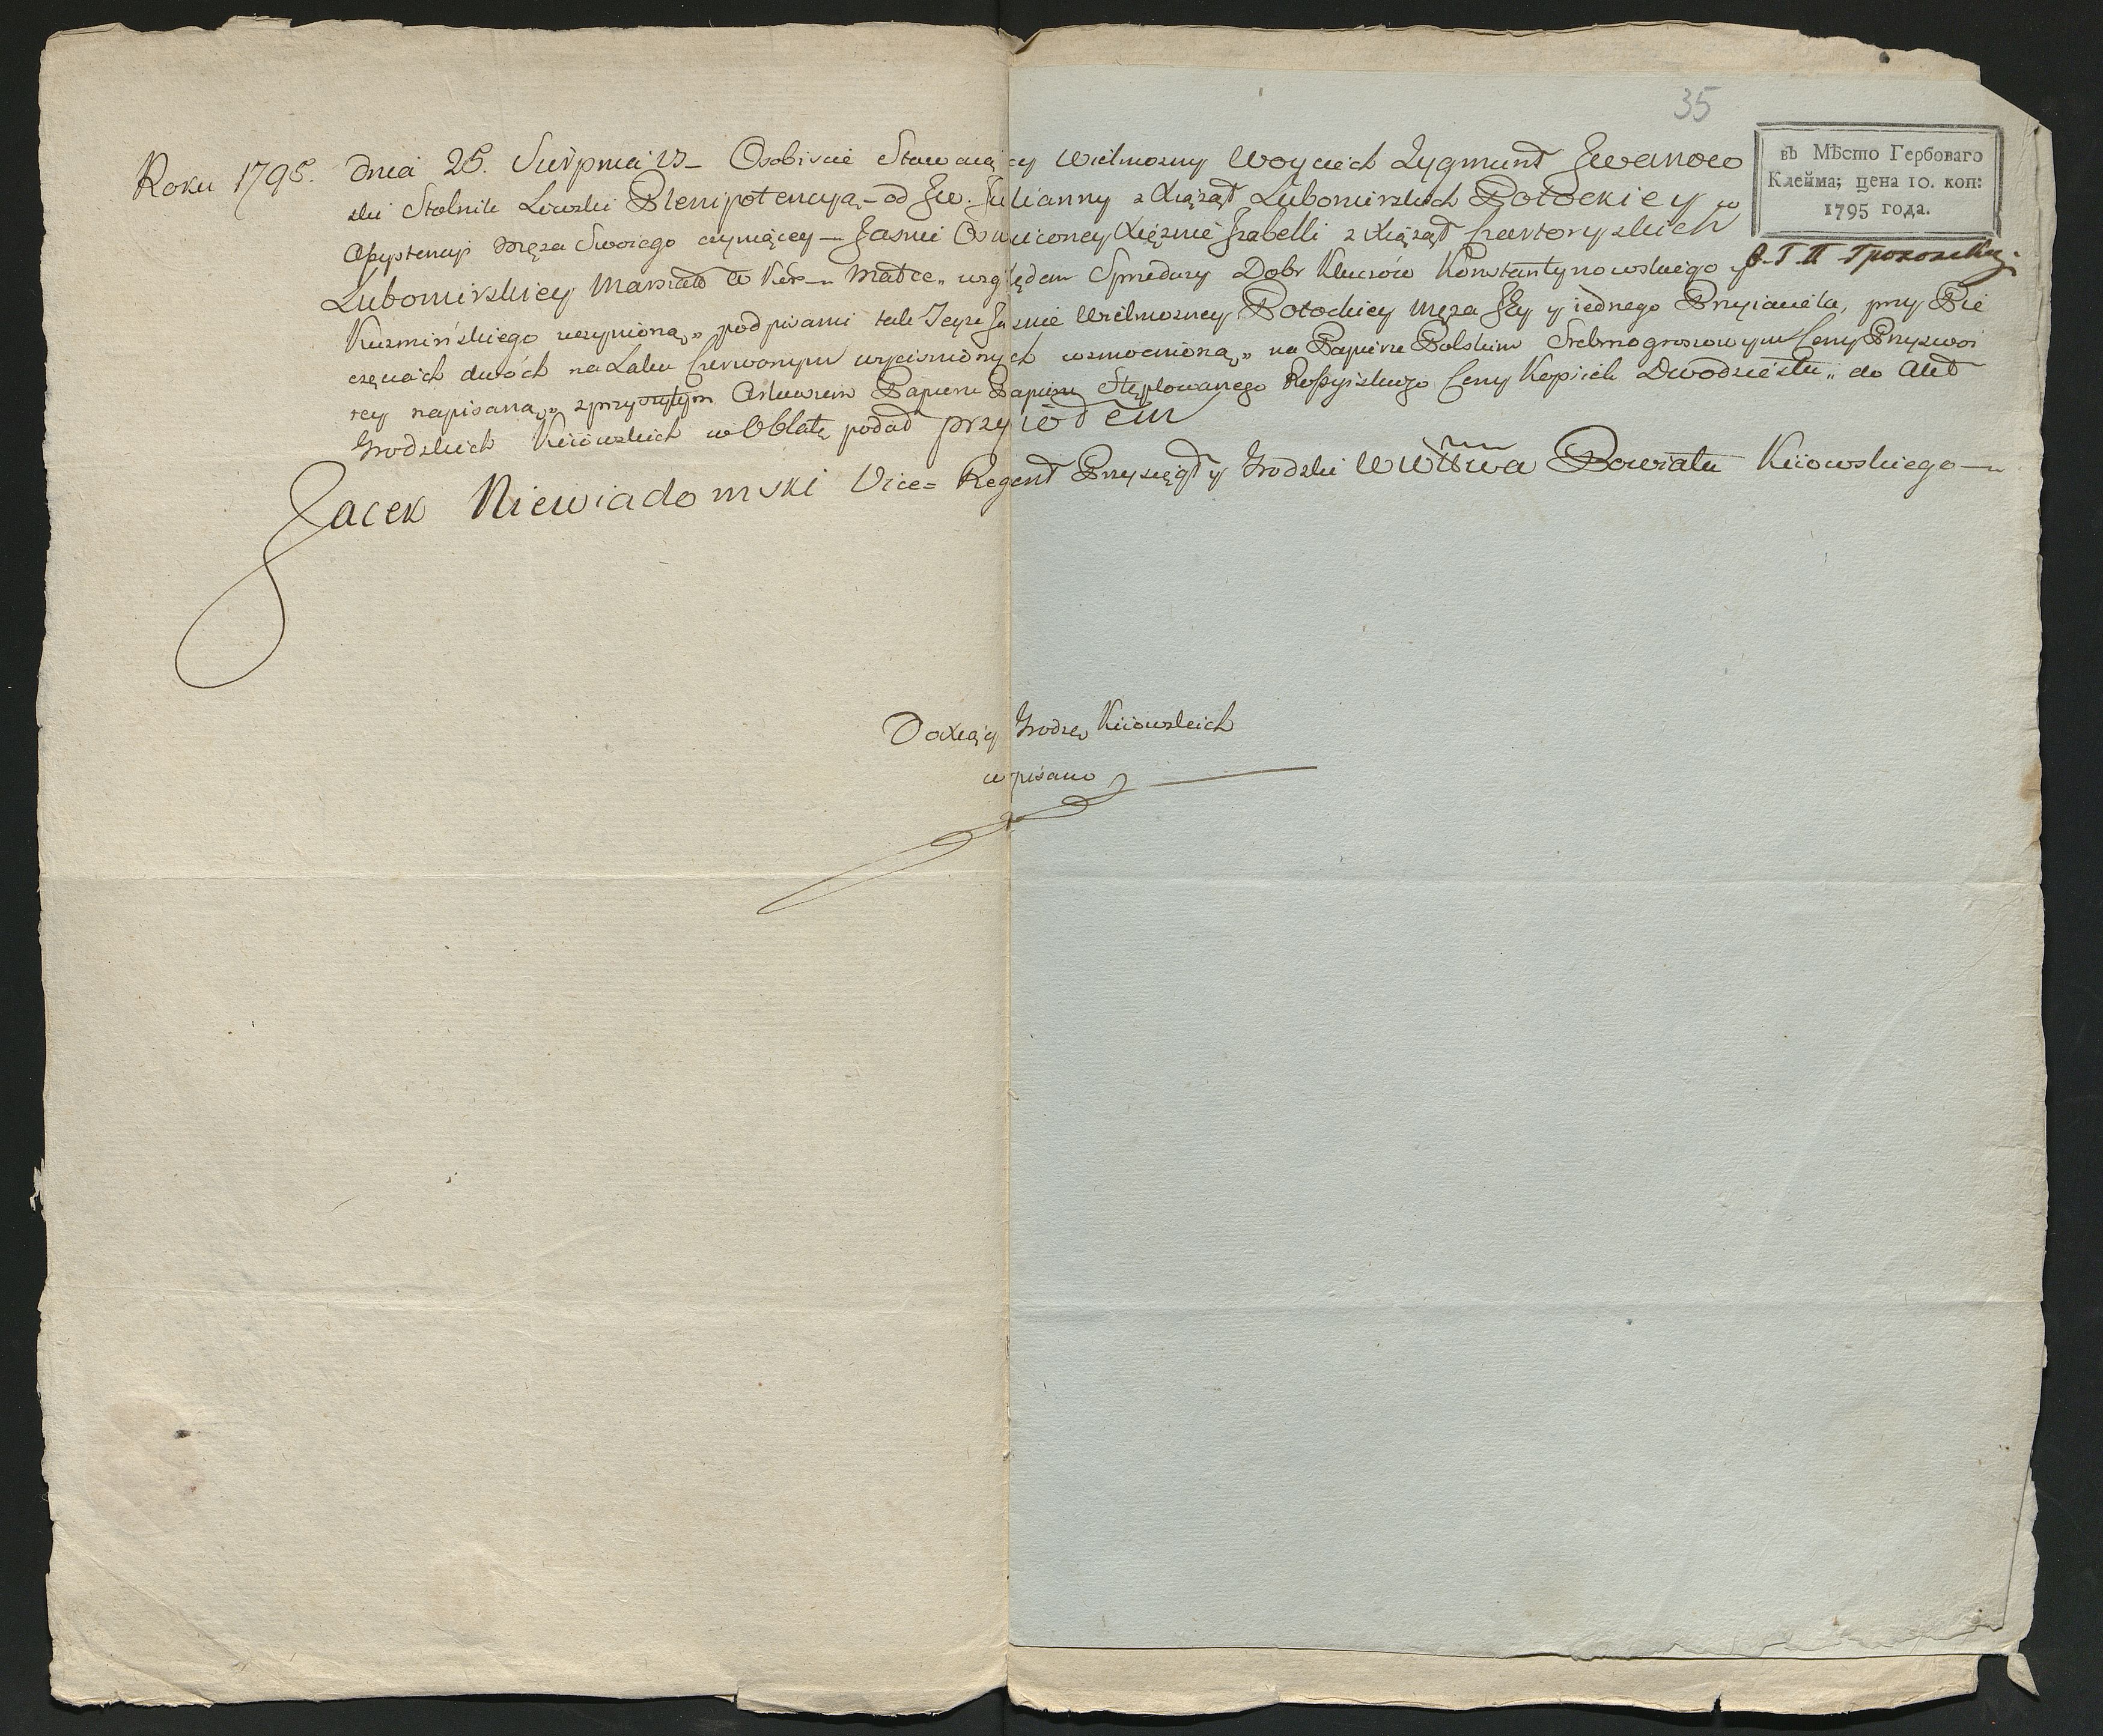 35
въ Мѣсто Гербоваго
Клейма; цена 10. коп:
1795 года.
Roku 1795. Dnia 25. Sierpnia Osobiscie Stawaiący Wielmozny Woyciech Zygmunt Jwanow
ski Stolnik Liwski Plenipotencyą od Jw. Julianny z Xiąząt Lubomirskich Potockiey w
Assystencyi Męza Swoiego czyniącey Jasnie Oswieconey Xięznie Jzabelli z Xiąząt Czartoryskich
Lubomirskiey Marszałł W Kor Matce" względem Sprzedazy Dobr Kluczow Konstantynowskiego y
Kuzminskiego uczynioną" podpisami tak Teyze Jasnie Wielmozney Potockiey Męza Jey y iednego Przyiaciela, przy Pie
częciach dwóch na Laku Czerwonym wycisnionych wzmocnioną" na Papierze Polskim Srebrnogroszowym Ceny Przyzwoi
tey napisaną" z przyszytym Arkuszem Papieru Papieru Stęplowanego Rossyiskiego Ceny Kopiiek Dwodziestu" do Akt
Grodzkich Kiiowskich w Oblatę podał przyiołem
Jacek Niewiadomski Vice= Regent Przysięgły Grodzki Wwttwa Powiatu Kiiowskiego
Do Xiąg Grodz Kiiowskich
wpisano